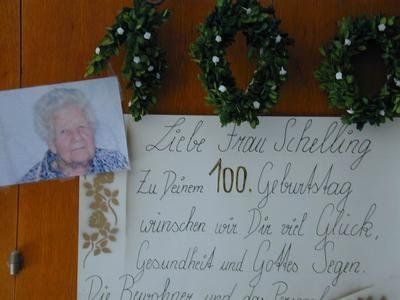 100
Liebe Frau Schelling
Zu Deinem 100. Geburtstag
wünschen wir Dir viel Glück,
Gesundheit und Gottes Segen.
Die Bewohner und das